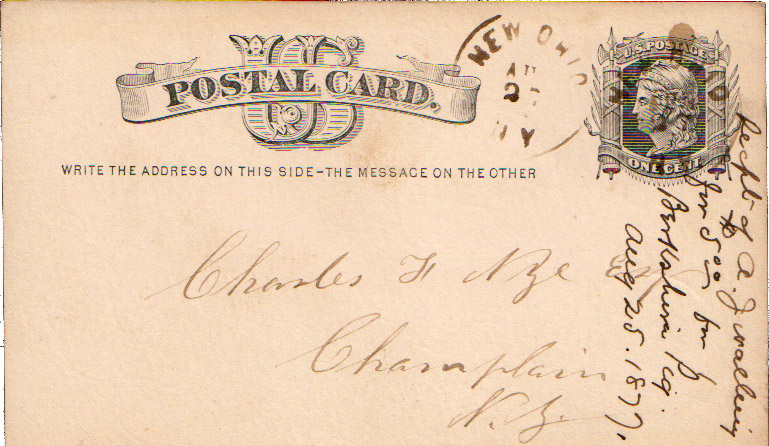 US
POSTAL CARD.
WRITE THE ADDRESS ON THIS SIDE-THE MESSAGE ON THE OTHER
NEW OHIO
AU
2
N Y
U.S. POSTAGE
ONE CENT
Charles H Nye Esq
Champlain
N.Y.
Recpt of A. J
for 5 00 for
Berkshire
Aug 25. 1877,